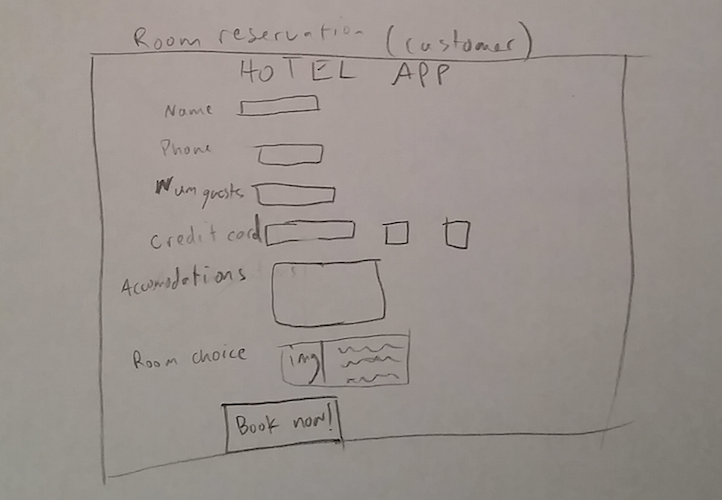 Room reservation (customer)
HOTEL APP
Name
Phone
Num guests
Credit card
Accomodations
Room choice
img
Book now!